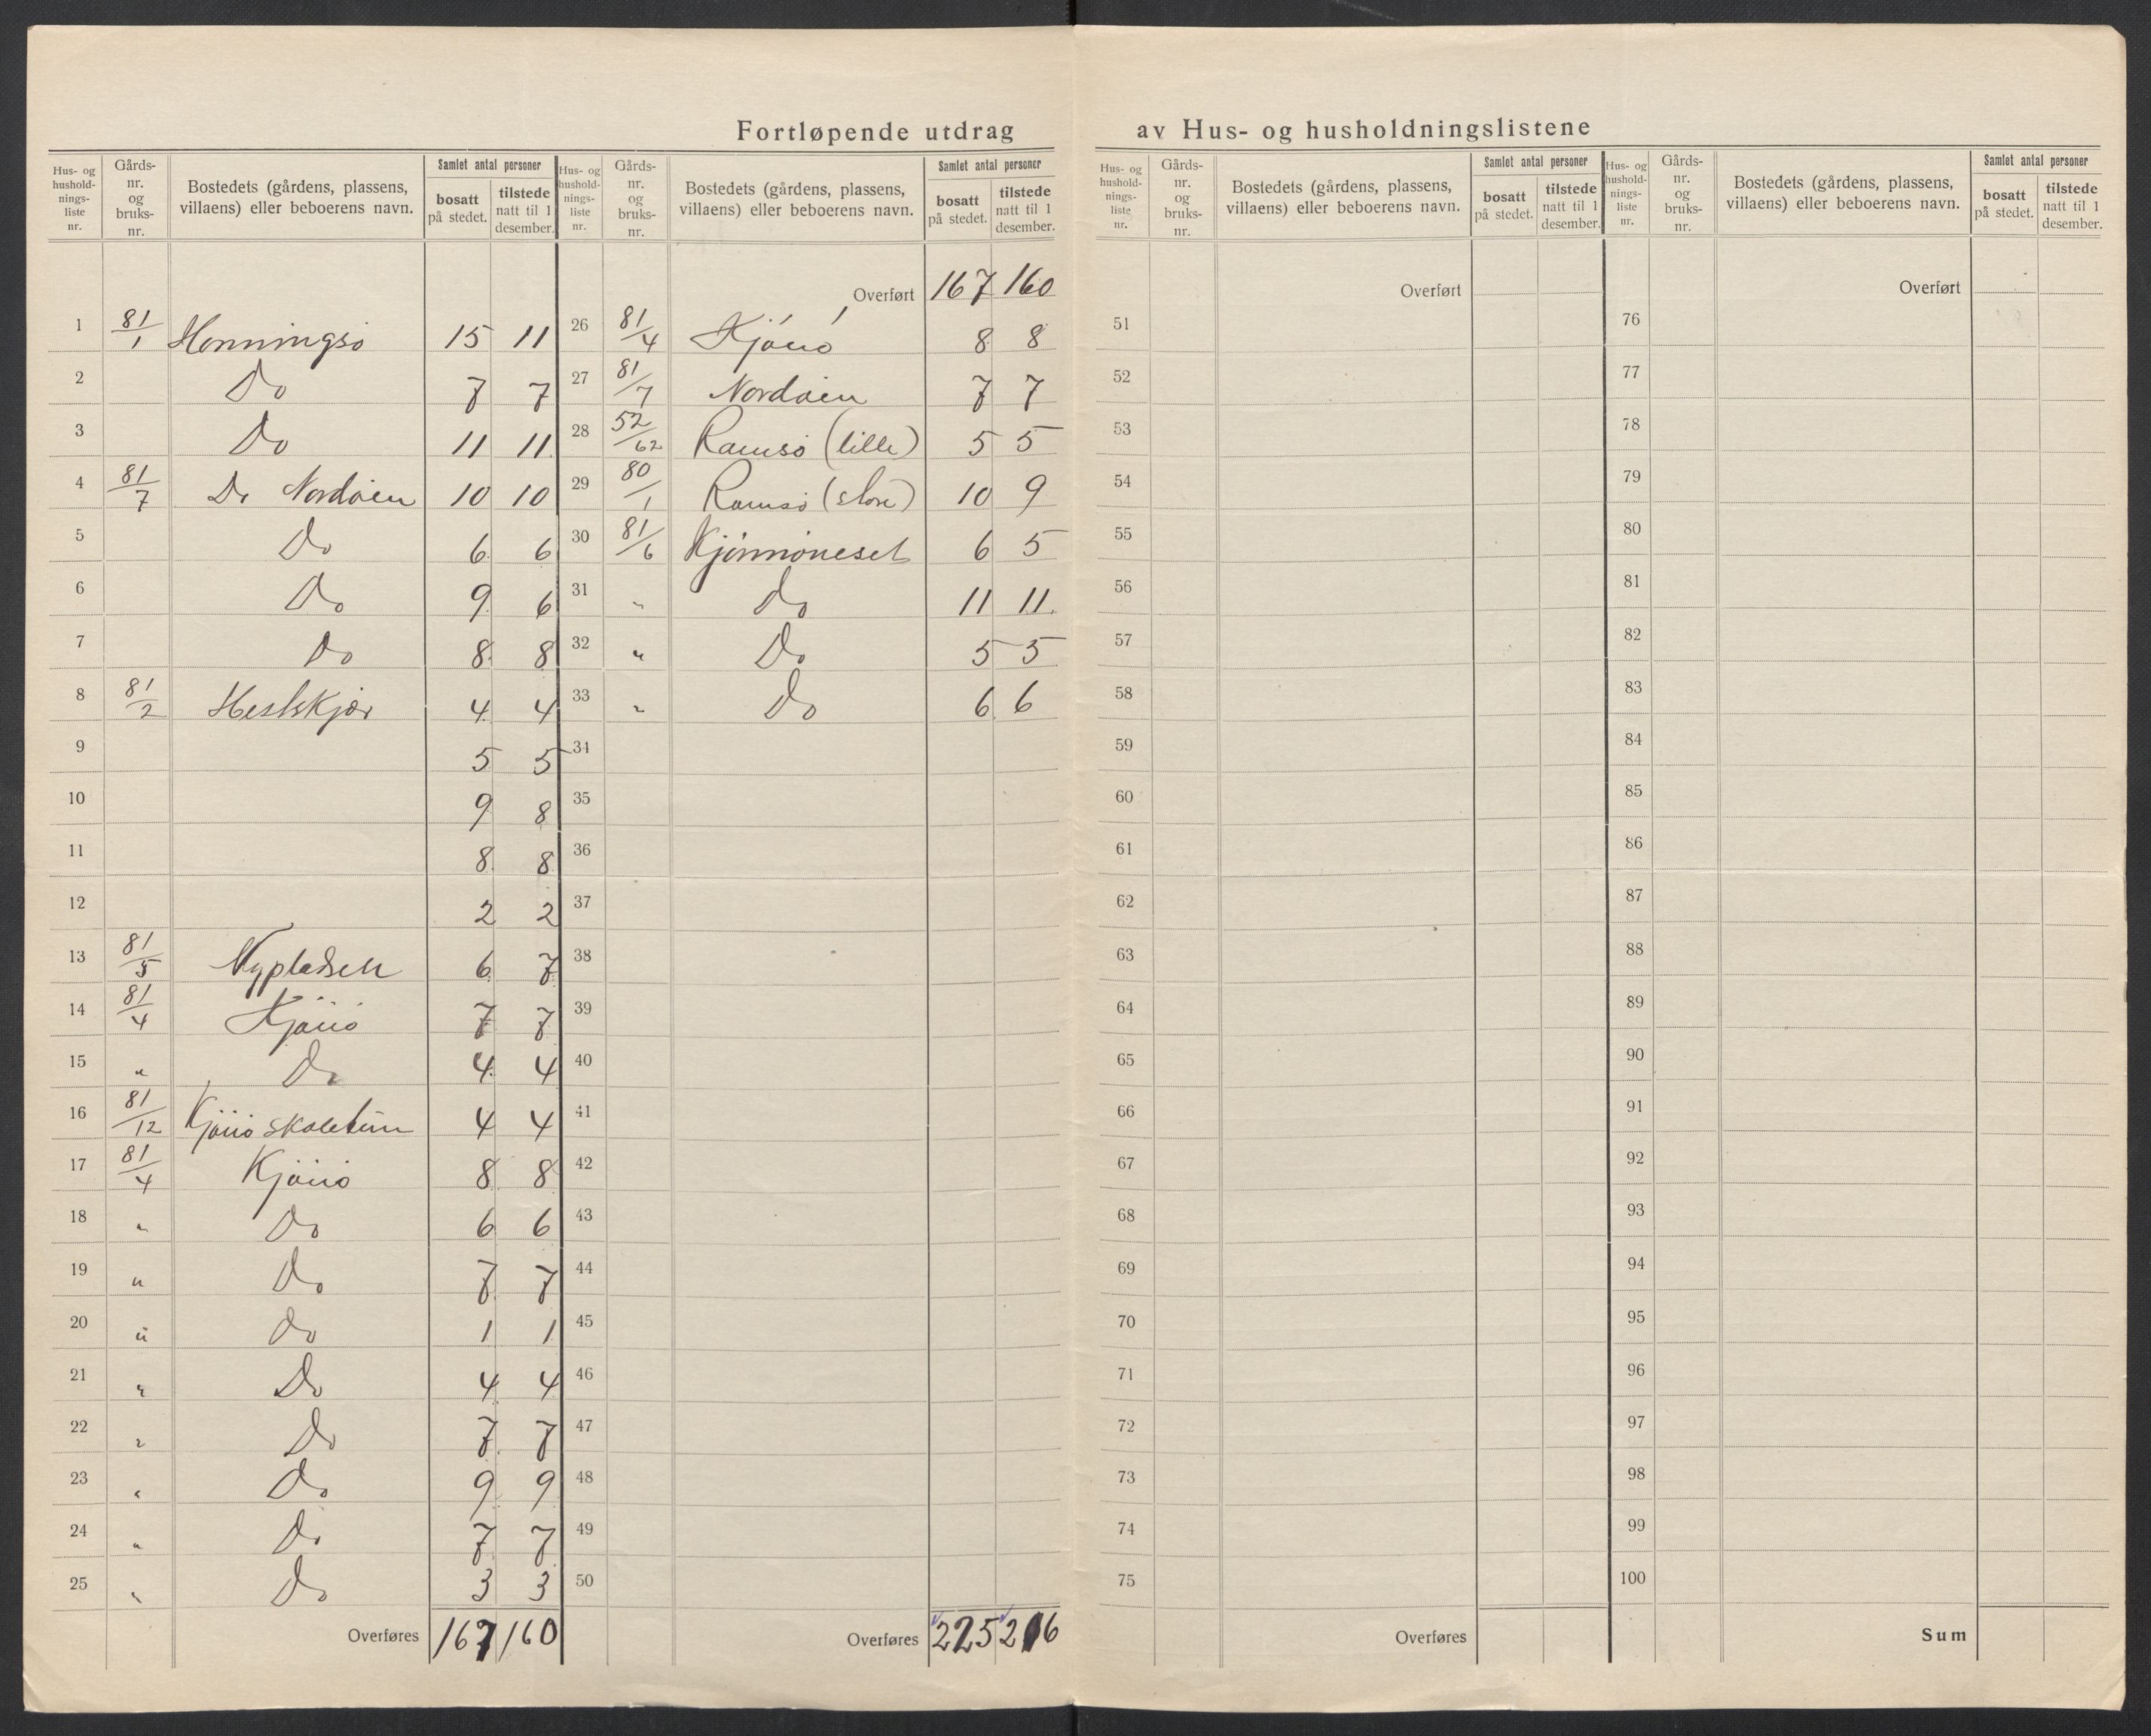 Fortløpende utdrag av Hus- og husholdningslistene
Hus- og hushold-nings-liste nr. Gårds-nr. og bruks-nr. Bostedets (gårdens, plassens, villaens) eller beboerens navn. Samlet antal personer bosatt på stedet. tilstede natt til 1 desember.
1 81/1 Henningsø 15 11
2 Do 7 7
3 Do 11 11
4 81/7 Do Nordøien 10 10
5 Do 6 6
6 Do 9 6
7 Do 8 8
8 81/2 Hestskjær 4 4
9 5 5
10 9 8
11 8 8
12 2 2
13 81/5 Nypladsen 6 7
14 81/4 Kjönø 7 7
15 " Do 4 4
16 81/12 Kjönø skoletun 4 4
17 81/4 Kjönø 8 8
18 " Do 6 6
19 " Do 7 7
20 " Do 1 1
21 " Do 4 4
22 " Do 7 7
23 " Do 9 9
24 " Do 7 7
25 " Do 3 3
Overføres 167 160
Hus- og hushold-nings-liste nr. Gårds-nr. og bruks-nr. Bostedets (gårdens, plassens, villaens) eller beboerens navn. Samlet antal personer bosatt på stedet. tilstede natt til 1 desember.
Overført 167 160
26 81/4 Kjönø 8 8
27 81/7 Nordøien 7 7
28 52/62 Ramsø (lille) 5 5
29 80/1 Ramsø (store) 10 9
30 81/6 Kjönnöneset 6 5
31 " Do 11 11
32 " Do 5 5
33 " Do 6 6
34
35
36
37
38
39
40
41
42
43
44
45
46
47
48
49
50
Overføres 225 216
Hus- og hushold-nings-liste nr. Gårds-nr. og bruks-nr. Bostedets (gårdens, plassens, villaens) eller beboerens navn. Samlet antal personer bosatt på stedet. tilstede natt til 1 desember.
Overført
51
52
53
54
55
56
57
58
59
60
61
62
63
64
65
66
67
68
69
70
71
72
73
74
75
Overføres
Hus- og hushold-nings-liste nr. Gårds-nr. og bruks-nr. Bostedets (gårdens, plassens, villaens) eller beboerens navn. Samlet antal personer bosatt på stedet. tilstede natt til 1 desember.
Overført
76
77
78
79
80
81
82
83
84
85
86
87
88
89
90
91
92
93
94
95
96
97
98
99
100
Sum